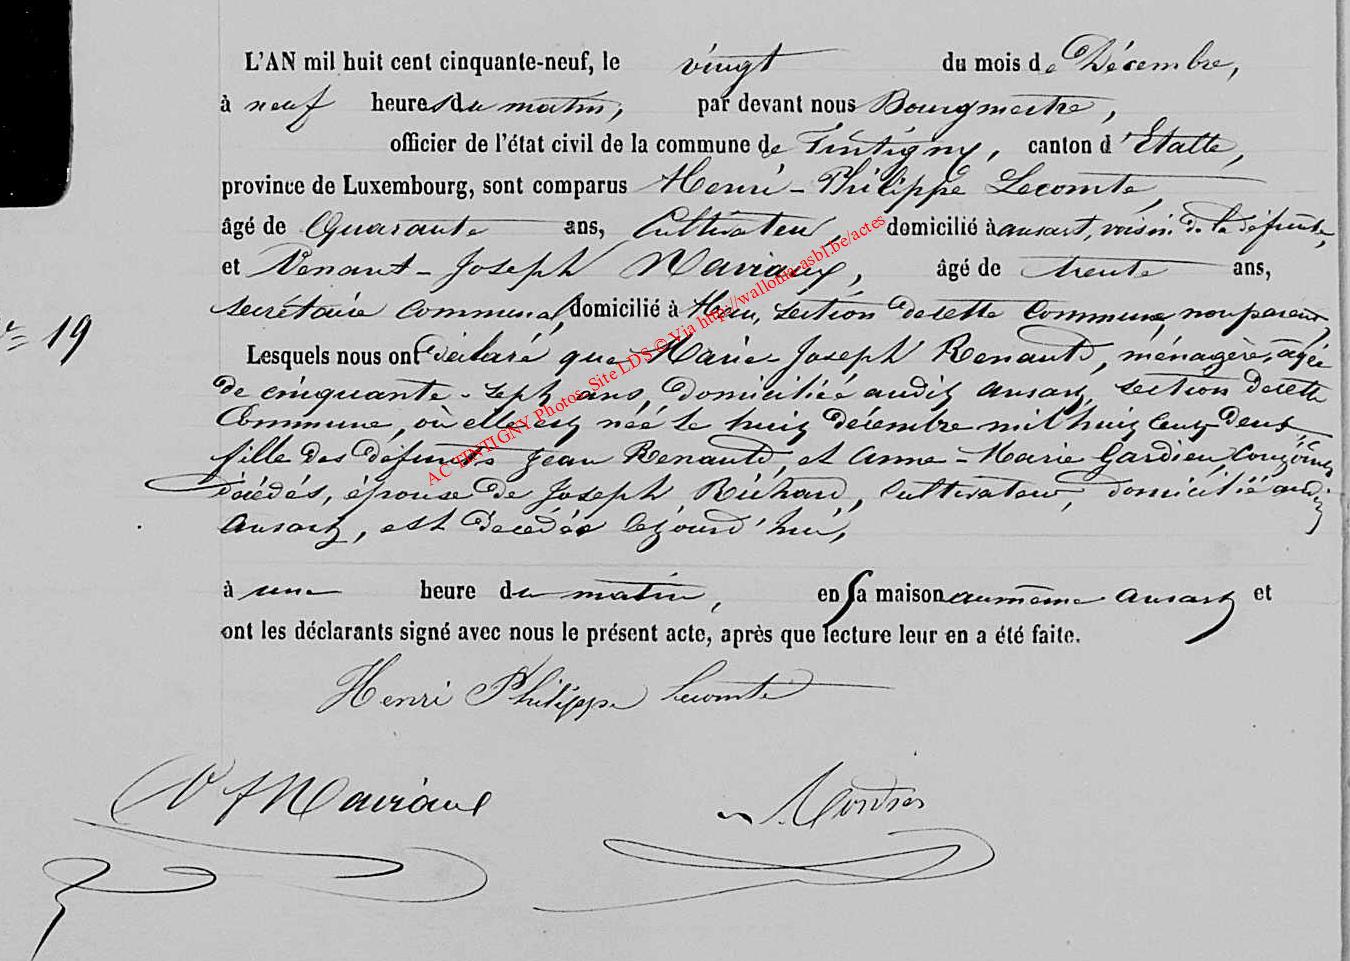 L'AN mil huit cent cinquante-neuf, le vingt du mois de Décembre,
à neuf heures du matin, par devant nous Bourgmestre,
officier de l'état civil de la commune de Tintigny, canton d'Etalle,
province de Luxembourg, sont comparus Henri-Philippe Lecomte,
âgé de Quarante ans, Cultivateur, domicilié à ansart, voisin de la défunte,
et Venant-Joseph Maviaux, âgé de trente ans,
secrétaire communal, domicilié à section de cette Commune, non parent,
N° 19
Lesquels nous ont déclaré que Marie-Joseph Renauld, ménagère, âgée
de cinquante-sept ans, domiciliée audit ansart, section de cette
Commune, où elle est née le huit décembre mil huit cent deux,
fille des défunts Jean Renauld, et Anne-Marie Gardien, conjoints
décédés, épouse de Joseph Richard, cultivateur, domicilié audit
Ansart, est décédée cejourd'hui,
à une heure du matin, en sa maison au même ansart et
ont les déclarants signé avec nous le présent acte, après que lecture leur en a été faite.
Henri Philippe Lecomte
V J Maviaux
AC TINTIGNY Photos Site LDS © Via http://wallonia-asbl.be/actes